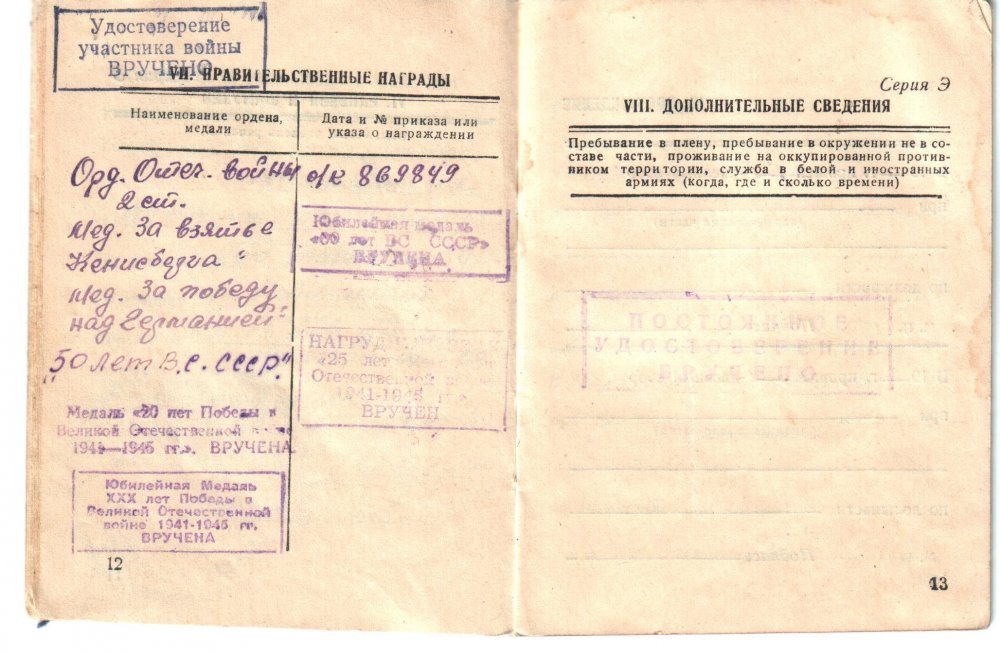 Удостоверение
участника войны
ВРУЧЕНО
VII. ПРАВИТЕЛЬСТВЕННЫЕ НАГРАДЫ
Наименование ордена,
медали
Дата и № приказа или
указа о награждении
Орд. Отеч. войны
2 ст.
о/к 869849
Мед. За взятье
Кенисберга"
Мед. За победу
над Германией"
"50 лет В.С. СССР."
Медаль «20 лет Победы в
Великой Отечественной войне
1941—1945 гг.». ВРУЧЕНА
Юбилейная Медаль
XXX лет Победы в
Великой Отечественной
войне 1941-1945 гг.
ВРУЧЕНА
Юбилейная медаль
«60 лет ВС СССР»
ВРУЧЕНА
НАГРУД
«25 лет
Отечественной
1941-1945 гг.».
ВРУЧЕН
12
Серия Э
VIII. ДОПОЛНИТЕЛЬНЫЕ СВЕДЕНИЯ
Пребывание в плену, пребывание в окружении не в со-
ставе части, проживание на оккупированной против-
ником территории, служба в белой и иностранных
армиях (когда, где и сколько времени)
УДОСТОВЕРЕНИЕ
ВРУЧЕНО
13